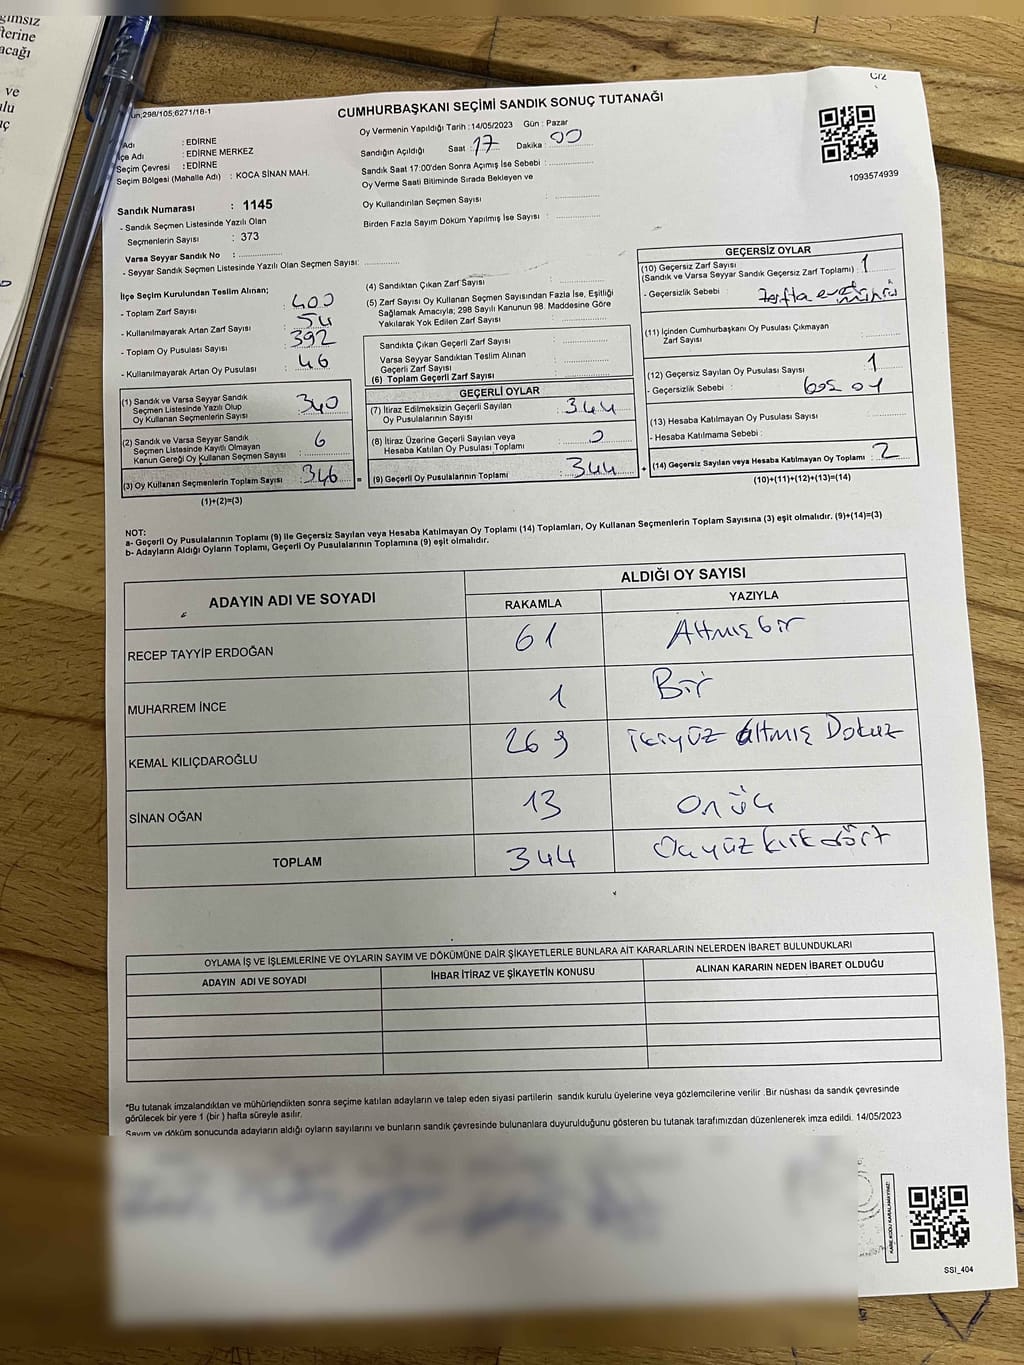 ğımsız
fterine
acağı
ve
ulu
ıç
un;298/105;6271/18-1
C/2
CUMHURBAŞKANI SEÇİMİ SANDIK SONUÇ TUTANAĞI
Adı : EDİRNE
İlçe Adı : EDİRNE MERKEZ
Seçim Çevresi : EDİRNE
Seçim Bölgesi (Mahalle Adı) : KOCA SİNAN MAH.
Oy Vermenin Yapıldığı Tarih : 14/05/2023 Gün : Pazar
Sandığın Açıldığı Saat : 17 Dakika : 00
Sandık Saat 17:00'den Sonra Açımış İse Sebebi :
Oy Verme Saati Bitiminde Sırada Bekleyen ve
Oy Kullandırılan Seçmen Sayısı :
Birden Fazla Sayım Döküm Yapılmış İse Sayısı :
1093574939
Sandık Numarası : 1145
- Sandık Seçmen Listesinde Yazılı Olan
Seçmenlerin Sayısı : 373
Varsa Seyyar Sandık No :
- Seyyar Sandık Seçmen Listesinde Yazılı Olan Seçmen Sayısı:
İlçe Seçim Kurulundan Teslim Alınan;
- Toplam Zarf Sayısı : 400
- Kullanılmayarak Artan Zarf Sayısı : 54
- Toplam Oy Pusulası Sayısı : 392
- Kullanılmayarak Artan Oy Pusulası : 46
(1) Sandık ve Varsa Seyyar Sandık
Seçmen Listesinde Yazılı Olup
Oy Kullanan Seçmenlerin Sayısı : 340
(2) Sandık ve Varsa Seyyar Sandık
Seçmen Listesinde Kayıtlı Olmayan
Kanun Gereği Oy Kullanan Seçmen Sayısı : 6
(3) Oy Kullanan Seçmenlerin Toplam Sayısı : 346 =
(1)+(2)=(3)
(4) Sandıktan Çıkan Zarf Sayısı :
(5) Zarf Sayısı Oy Kullanan Seçmen Sayısından Fazla İse, Eşitliği
Sağlamak Amacıyla; 298 Sayılı Kanunun 98. Maddesine Göre
Yakılarak Yok Edilen Zarf Sayısı :
Sandıkta Çıkan Geçerli Zarf Sayısı :
Varsa Seyyar Sandıktan Teslim Alınan
Geçerli Zarf Sayısı :
(6) Toplam Geçerli Zarf Sayısı :
GEÇERLİ OYLAR
(7) İtiraz Edilmeksizin Geçerli Sayılan
Oy Pusulalarının Sayısı : 344
(8) İtiraz Üzerine Geçerli Sayılan veya
Hesaba Katılan Oy Pusulası Toplamı : 0
(9) Geçerli Oy Pusulalarının Toplamı : 344 +
GEÇERSİZ OYLAR
(10) Geçersiz Zarf Sayısı
(Sandık ve Varsa Seyyar Sandık Geçersiz Zarf Toplamı) : 1
- Geçersizlik Sebebi : Zarfta evet mührü
(11) İçinden Cumhurbaşkanı Oy Pusulası Çıkmayan
Zarf Sayısı :
(12) Geçersiz Sayılan Oy Pusulası Sayısı : 1
- Geçersizlik Sebebi : boş oy
(13) Hesaba Katılmayan Oy Pusulası Sayısı :
- Hesaba Katılmama Sebebi :
(14) Geçersiz Sayılan veya Hesaba Katılmayan Oy Toplamı : 2
(10)+(11)+(12)+(13)=(14)
NOT:
a- Geçerli Oy Pusulalarının Toplamı (9) ile Geçersiz Sayılan veya Hesaba Katılmayan Oy Toplamı (14) Toplamları, Oy Kullanan Seçmenlerin Toplam Sayısına (3) eşit olmalıdır. (9)+(14)=(3)
b- Adayların Aldığı Oyların Toplamı, Geçerli Oy Pusulalarının Toplamına (9) eşit olmalıdır.
ADAYIN ADI VE SOYADI
ALDIĞI OY SAYISI
RAKAMLA YAZIYLA
RECEP TAYYİP ERDOĞAN 61 Altmışbir
MUHARREM İNCE 1 Bir
KEMAL KILIÇDAROĞLU 269 ikiyüz altmış Dokuz
SİNAN OĞAN 13 Onüç
TOPLAM 344 Üçyüz kırk dört
OYLAMA İŞ VE İŞLEMLERİNE VE OYLARIN SAYIM VE DÖKÜMÜNE DAİR ŞİKAYETLERLE BUNLARA AİT KARARLARIN NELERDEN İBARET BULUNDUKLARI
ADAYIN ADI VE SOYADI İHBAR İTİRAZ VE ŞİKAYETİN KONUSU ALINAN KARARIN NEDEN İBARET OLDUĞU
*Bu tutanak imzalandıktan ve mühürlendikten sonra seçime katılan adayların ve talep eden siyasi partilerin sandık kurulu üyelerine veya gözlemcilerine verilir .Bir nüshası da sandık çevresinde
görülecek bir yere 1 (bir ) hafta süreyle asılır.
Sayım ve döküm sonucunda adayların aldığı oyların sayılarını ve bunların sandık çevresinde bulunanlara duyurulduğunu gösteren bu tutanak tarafımızdan düzenlenerek imza edildi. 14/05/2023
KARE KODU KARALAMAYINIZ!
SSI_404